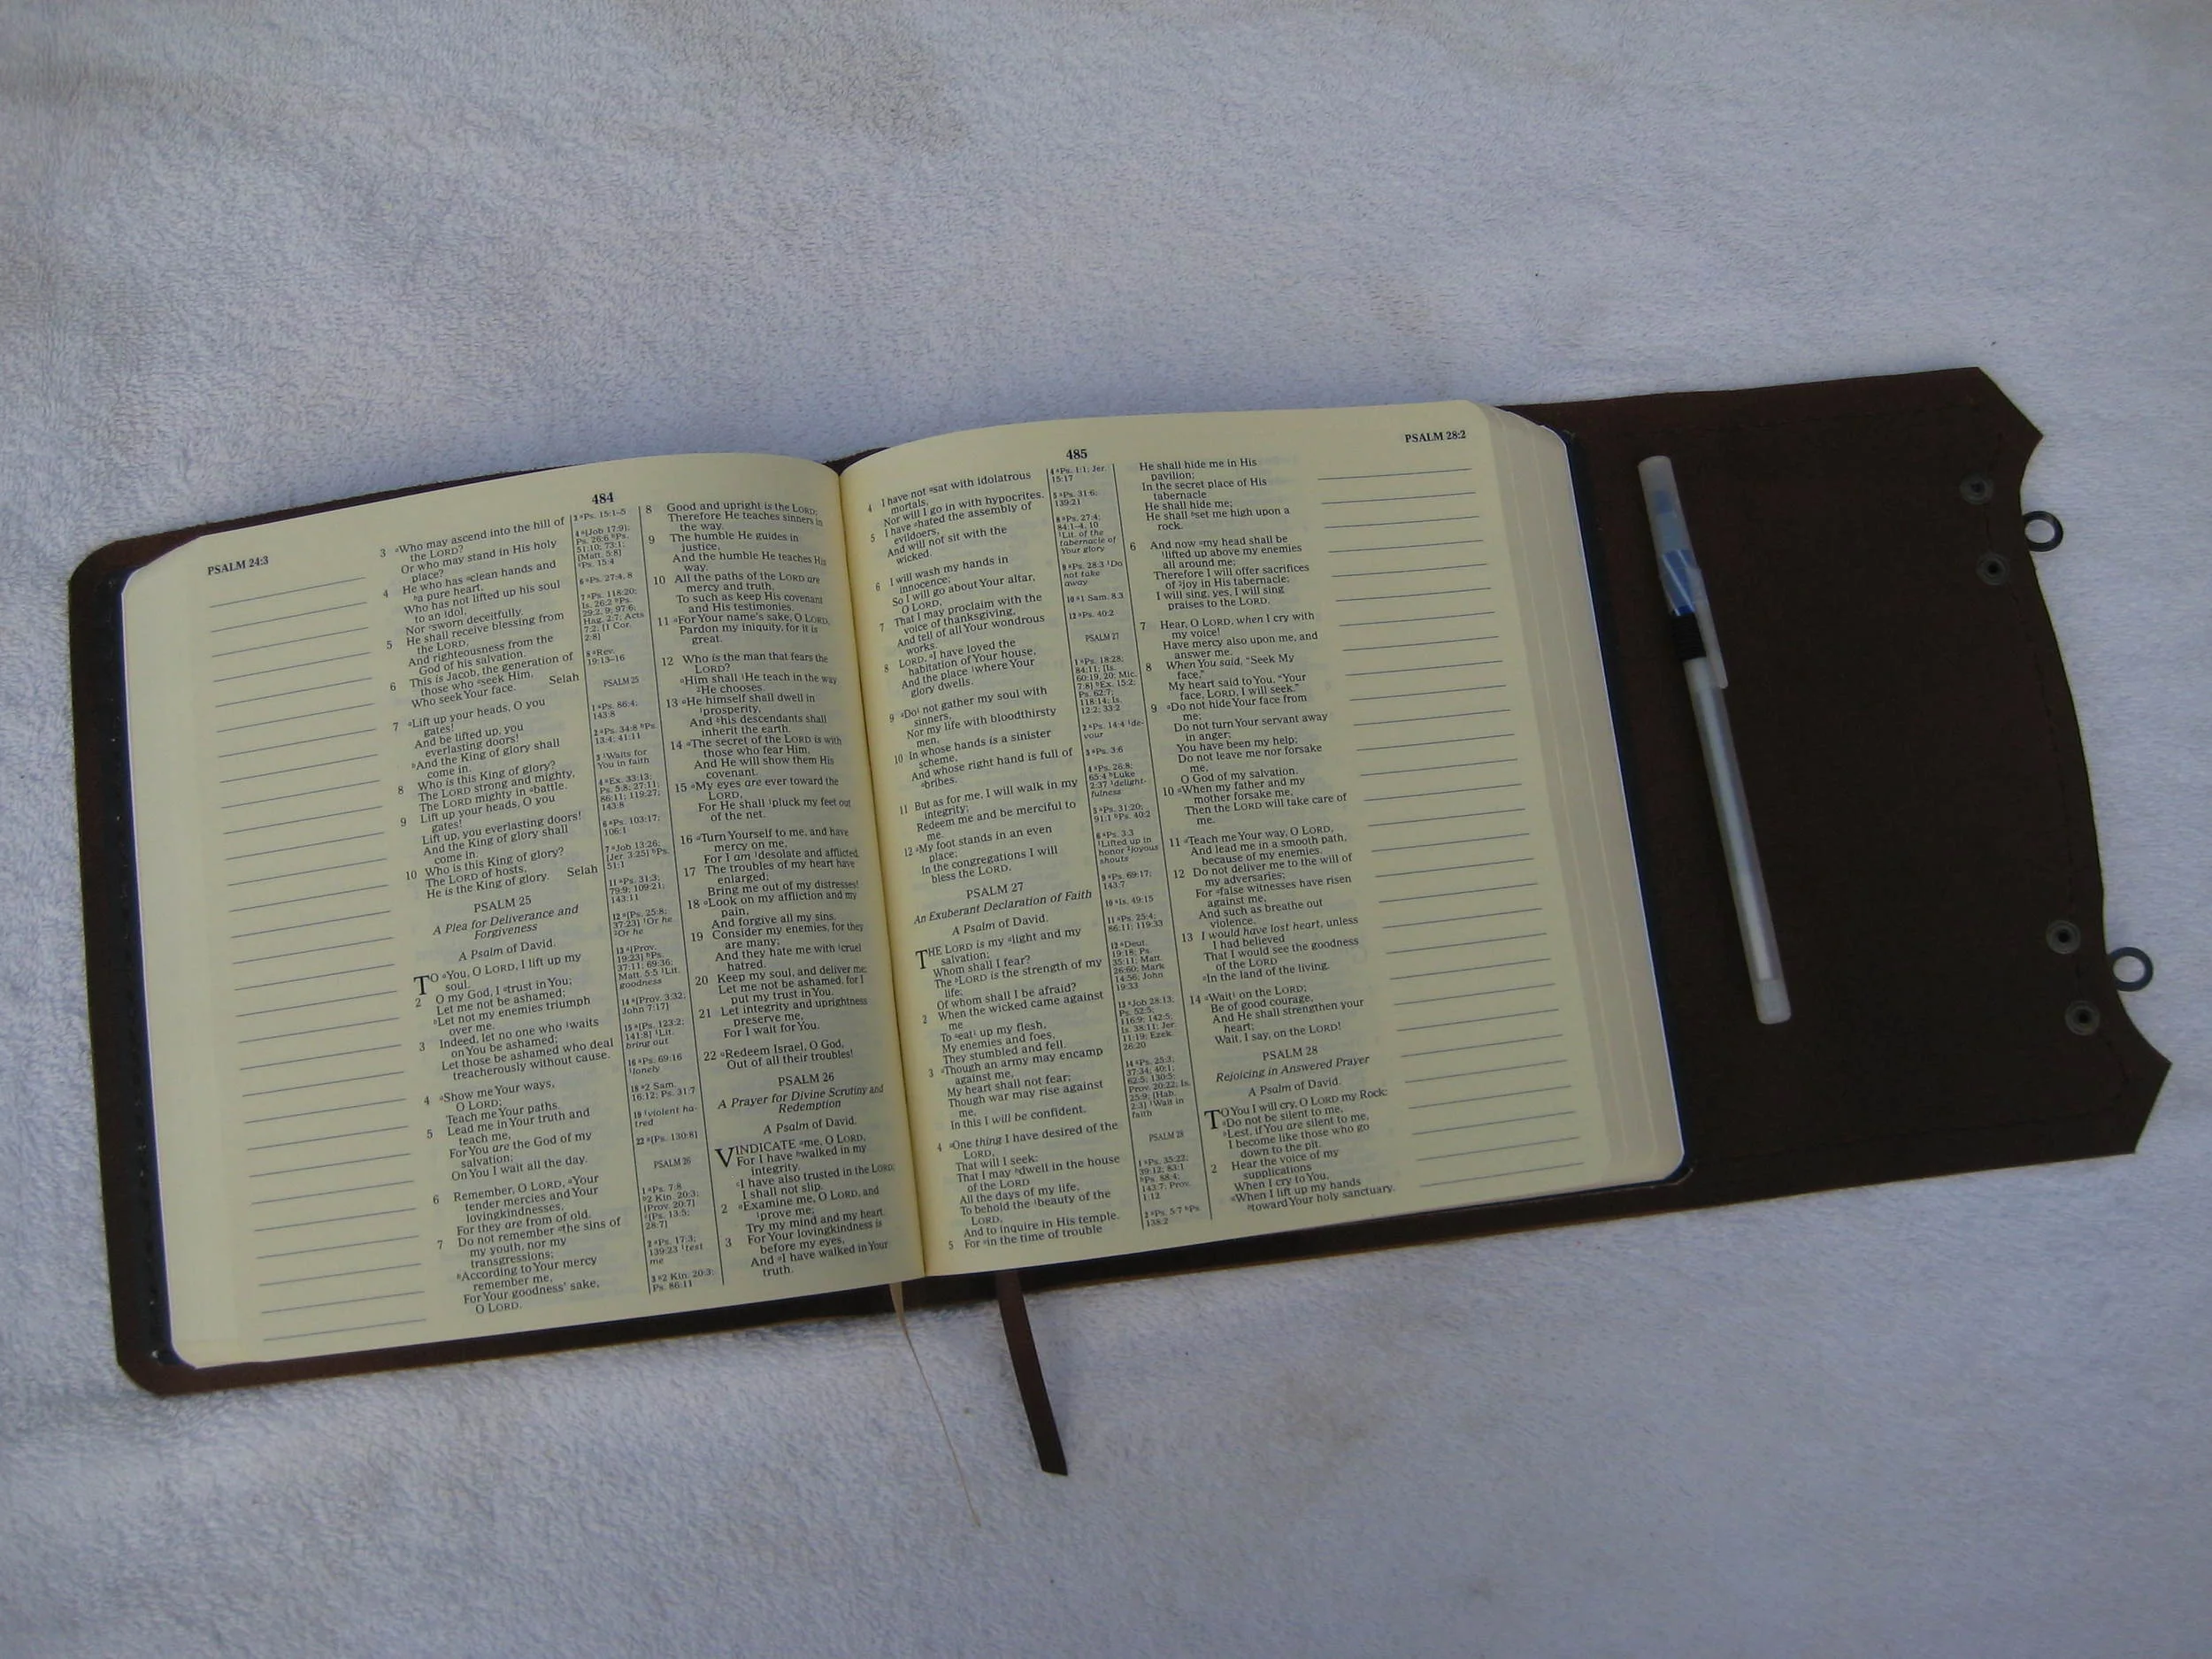 484
PSALM 24:3
3 aWho may ascend into the hill of
the LORD?
Or who may stand in His holy
place?
4 He who has aclean hands and
ba pure heart,
Who has not lifted up his soul
to an idol,
Nor csworn deceitfully.
5 He shall receive blessing from
the LORD,
And righteousness from the
God of his salvation.
6 This is Jacob, the generation of
those who aseek Him,
Who seek Your face. Selah
7 aLift up your heads, O you
gates!
And be lifted up, you
everlasting doors!
bAnd the King of glory shall
come in.
8 Who is this King of glory?
The LORD strong and mighty,
The LORD mighty in abattle.
9 Lift up your heads, O you
gates!
Lift up, you everlasting doors!
And the King of glory shall
come in.
10 Who is this King of glory?
The LORD of hosts,
He is the King of glory. Selah
PSALM 25
A Plea for Deliverance and
Forgiveness
A Psalm of David.
TO aYou, O LORD, I lift up my
soul.
2 O my God, I atrust in You;
Let me not be ashamed;
bLet not my enemies triumph
over me.
3 Indeed, let no one who 1waits
on You be ashamed;
Let those be ashamed who deal
treacherously without cause.
4 aShow me Your ways,
O LORD;
Teach me Your paths.
5 Lead me in Your truth and
teach me,
For You are the God of my
salvation;
On You I wait all the day.
6 Remember, O LORD, aYour
tender mercies and Your
lovingkindnesses,
For they are from of old.
7 Do not remember athe sins of
my youth, nor my
transgressions;
bAccording to Your mercy
remember me,
For Your goodness' sake,
O LORD.
3 aPs. 15:1-5
4 a[Job 17:9];
Ps. 26:6 bPs.
51:10; 73:1;
[Matt. 5:8]
cPs. 15:4
6 aPs. 27:4, 8
7 aPs. 118:20;
Is. 26:2 bPs.
29:2, 9; 97:6;
Hag. 2:7; Acts
7:2; [1 Cor.
2:8]
8 aRev.
19:13-16
PSALM 25
1 aPs. 86:4;
143:8
2 aPs. 34:8 bPs.
13:4; 41:11
3 1Waits for
You in faith
4 aEx. 33:13;
Ps. 5:8; 27:11;
86:11; 119:27;
143:8
6 aPs. 103:17;
106:1
7 aJob 13:26;
[Jer. 3:25] bPs.
51:1
11 aPs. 31:3;
79:9; 109:21;
143:11
12 a[Ps. 25:8;
37:23] 1Or he
2Or he
13 a[Prov.
19:23] bPs.
37:11; 69:36;
Matt. 5:5 1Lit.
goodness
14 a[Prov. 3:32;
John 7:17]
15 a[Ps. 123:2;
141:8] 1Lit.
bring out
16 aPs. 69:16
1lonely
18 a2 Sam.
16:12; Ps. 31:7
19 1violent ha-
tred
22 a[Ps. 130:8]
PSALM 26
1 aPs. 7:8
b2 Kin. 20:3;
[Prov. 20:7]
c[Ps. 13:5;
28:7]
2 aPs. 17:3;
139:23 1test
me
3 a2 Kin. 20:3;
Ps. 86:11
8 Good and upright is the LORD;
Therefore He teaches sinners in
the way.
9 The humble He guides in
justice,
And the humble He teaches His
way.
10 All the paths of the LORD are
mercy and truth,
To such as keep His covenant
and His testimonies.
11 aFor Your name's sake, O LORD,
Pardon my iniquity, for it is
great.
12 Who is the man that fears the
LORD?
aHim shall 1He teach in the way
2He chooses.
13 aHe himself shall dwell in
1prosperity,
And bhis descendants shall
inherit the earth.
14 aThe secret of the LORD is with
those who fear Him,
And He will show them His
covenant.
15 aMy eyes are ever toward the
LORD,
For He shall 1pluck my feet out
of the net.
16 aTurn Yourself to me, and have
mercy on me,
For I am 1desolate and afflicted.
17 The troubles of my heart have
enlarged;
Bring me out of my distresses!
18 aLook on my affliction and my
pain,
And forgive all my sins.
19 Consider my enemies, for they
are many;
And they hate me with 1cruel
hatred.
20 Keep my soul, and deliver me;
Let me not be ashamed, for I
put my trust in You.
21 Let integrity and uprightness
preserve me,
For I wait for You.
22 aRedeem Israel, O God,
Out of all their troubles!
PSALM 26
A Prayer for Divine Scrutiny and
Redemption
A Psalm of David.
VINDICATE ame, O LORD,
For I have bwalked in my
integrity.
cI have also trusted in the LORD;
I shall not slip.
2 aExamine me, O LORD, and
1prove me;
Try my mind and my heart.
3 For Your lovingkindness is
before my eyes,
And aI have walked in Your
truth.
485
PSALM 28:2
4 I have not asat with idolatrous
mortals,
Nor will I go in with hypocrites.
5 I have ahated the assembly of
evildoers,
And will not sit with the
wicked.
6 I will wash my hands in
innocence;
So I will go about Your altar,
O LORD,
7 That I may proclaim with the
voice of thanksgiving,
And tell of all Your wondrous
works.
8 LORD, aI have loved the
habitation of Your house,
And the place 1where Your
glory dwells.
9 aDo1 not gather my soul with
sinners,
Nor my life with bloodthirsty
men,
10 In whose hands is a sinister
scheme,
And whose right hand is full of
abribes.
11 But as for me, I will walk in my
integrity;
Redeem me and be merciful to
me.
12 aMy foot stands in an even
place;
In the congregations I will
bless the LORD.
PSALM 27
An Exuberant Declaration of Faith
A Psalm of David.
THE LORD is my alight and my
salvation;
Whom shall I fear?
The bLORD is the strength of my
life;
Of whom shall I be afraid?
2 When the wicked came against
me
To aeat1 up my flesh,
My enemies and foes,
They stumbled and fell.
3 aThough an army may encamp
against me,
My heart shall not fear;
Though war may rise against
me,
In this I will be confident.
4 aOne thing I have desired of the
LORD,
That will I seek:
That I may bdwell in the house
of the LORD
All the days of my life,
To behold the 1beauty of the
LORD,
And to inquire in His temple.
5 For ain the time of trouble
4 aPs. 1:1; Jer.
15:17
5 aPs. 31:6;
139:21
8 aPs. 27:4;
84:1-4, 10
1Lit. of the
tabernacle of
Your glory
9 aPs. 28:3 1Do
not take
away
10 a1 Sam. 8:3
12 aPs. 40:2
PSALM 27
1 aPs. 18:28;
84:11; [Is.
60:19, 20; Mic.
7:8] bEx. 15:2;
Ps. 62:7;
118:14; Is.
12:2; 33:2
2 aPs. 14:4 1de-
vour
3 aPs. 3:6
4 aPs. 26:8;
65:4 bLuke
2:37 1delight-
fulness
5 aPs. 31:20;
91:1 bPs. 40:2
6 aPs. 3:3
1Lifted up in
honor 2joyous
shouts
9 aPs. 69:17;
143:7
10 aIs. 49:15
11 aPs. 25:4;
86:11; 119:33
12 aDeut.
19:18; Ps.
35:11; Matt.
26:60; Mark
14:56; John
19:33
13 aJob 28:13;
Ps. 52:5;
116:9; 142:5;
Is. 38:11; Jer.
11:19; Ezek.
26:20
14 aPs. 25:3;
37:34; 40:1;
62:5; 130:5;
Prov. 20:22; Is.
25:9; [Hab.
2:3] 1Wait in
faith
PSALM 28
1 aPs. 35:22;
39:12; 83:1
bPs. 88:4;
143:7; Prov.
1:12
2 aPs. 5:7 bPs.
138:2
He shall hide me in His
pavilion;
In the secret place of His
tabernacle
He shall hide me;
He shall bset me high upon a
rock.
6 And now amy head shall be
1lifted up above my enemies
all around me;
Therefore I will offer sacrifices
of 2joy in His tabernacle;
I will sing, yes, I will sing
praises to the LORD.
7 Hear, O LORD, when I cry with
my voice!
Have mercy also upon me, and
answer me.
8 When You said, "Seek My
face,"
My heart said to You, "Your
face, LORD, I will seek."
9 aDo not hide Your face from
me;
Do not turn Your servant away
in anger;
You have been my help;
Do not leave me nor forsake
me,
O God of my salvation.
10 aWhen my father and my
mother forsake me,
Then the LORD will take care of
me.
11 aTeach me Your way, O LORD,
And lead me in a smooth path,
because of my enemies.
12 Do not deliver me to the will of
my adversaries;
For afalse witnesses have risen
against me,
And such as breathe out
violence.
13 I would have lost heart, unless
I had believed
That I would see the goodness
of the LORD
aIn the land of the living.
14 aWait1 on the LORD;
Be of good courage,
And He shall strengthen your
heart;
Wait, I say, on the LORD!
PSALM 28
Rejoicing in Answered Prayer
A Psalm of David.
TO You I will cry, O LORD my Rock:
aDo not be silent to me,
bLest, if You are silent to me,
I become like those who go
down to the pit.
2 Hear the voice of my
supplications
When I cry to You,
aWhen I lift up my hands
btoward Your holy sanctuary.